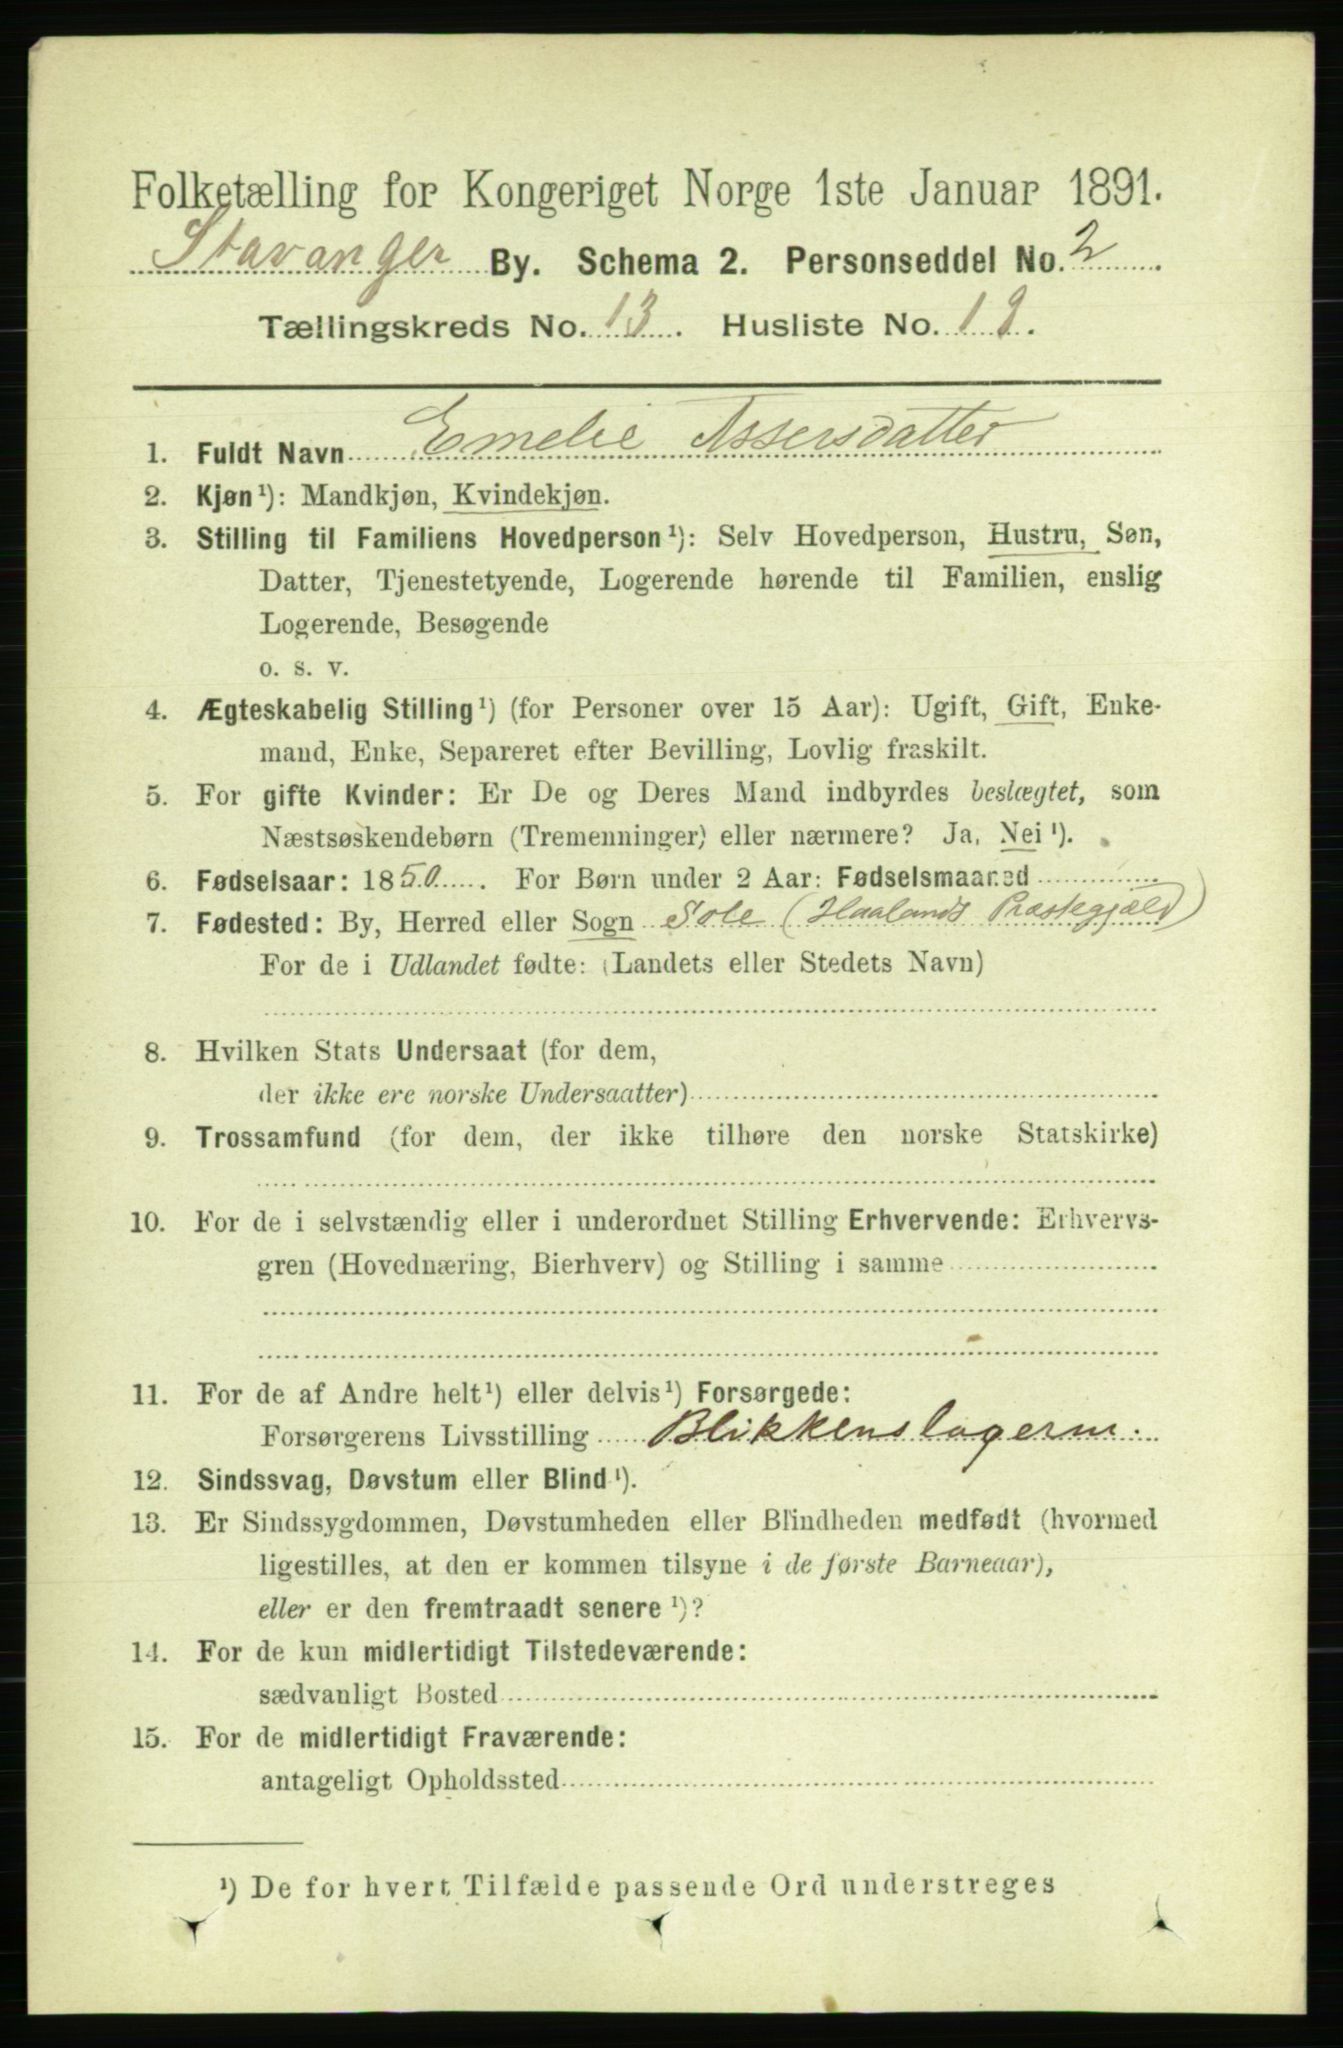 Folketælling for Kongeriget Norge 1ste Januar 1891.
Stavanger By. Schema 2. Personseddel No. 2
Tællingskreds No. 13. Husliste No. 19.
1. Fuldt Navn Emelie Assersdatter
2. Kjøn¹): Mandkjøn, Kvindekjøn.
3. Stilling til Familiens Hovedperson¹): Selv Hovedperson, Hustru, Søn,
Datter, Tjenestetyende, Logerende hørende til Familien, enslig
Logerende, Besøgende
o. s. v.
4. Ægteskabelig Stilling¹) (for Personer over 15 Aar): Ugift, Gift, Enke-
mand, Enke, Separeret efter Bevilling, Lovlig fraskilt.
5. For gifte Kvinder: Er De og Deres Mand indbyrdes beslægtet, som
Næstsøskendebørn (Tremenninger) eller nærmere? Ja, Nei¹).
6. Fødselsaar: 1850. For Børn under 2 Aar: Fødselsmaaned
7. Fødested: By, Herred eller Sogn Sole (Haalands Præstegjæld)
For de i Udlandet fødte: (Landets eller Stedets Navn)
8. Hvilken Stats Undersaat (for dem,
der ikke ere norske Undersaatter)
9. Trossamfund (for dem, der ikke tilhøre den norske Statskirke)
10. For de i selvstændig eller i underordnet Stilling Erhvervende: Erhvervs-
gren (Hovednæring, Bierhverv) og Stilling i samme
11. For de af Andre helt¹) eller delvis¹) Forsørgede:
Forsørgerens Livsstilling Blikkenslagerm.
12. Sindssvag, Døvstum eller Blind¹).
13. Er Sindssygdommen, Døvstumheden eller Blindheden medfødt (hvormed
ligestilles, at den er kommen tilsyne i de første Barneaar),
eller er den fremtraadt senere¹)?
14. For de kun midlertidigt Tilstedeværende:
sædvanligt Bosted
15. For de midlertidigt Fraværende:
antageligt Opholdssted
¹) De for hvert Tilfælde passende Ord understreges